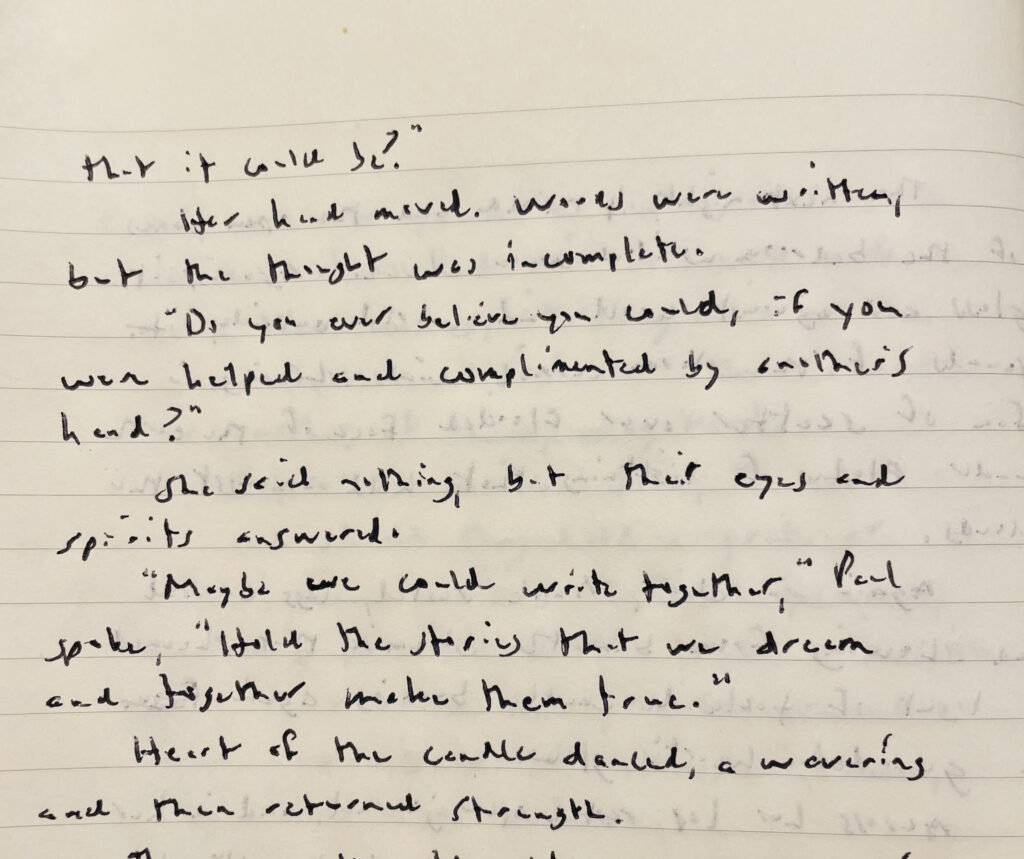 that it could be?"
Her hand moved. Words were written,
but the thought was incomplete.
"Do you ever believe you could, if you
were helped and complimented by another's
hand?"
She said nothing, but their eyes and
spirits answered.
"Maybe we could write together," Paul
spoke, "Hold the stories that we dream
and together make them true."
Heart of the candle danced, a wavering
and then returned strength.